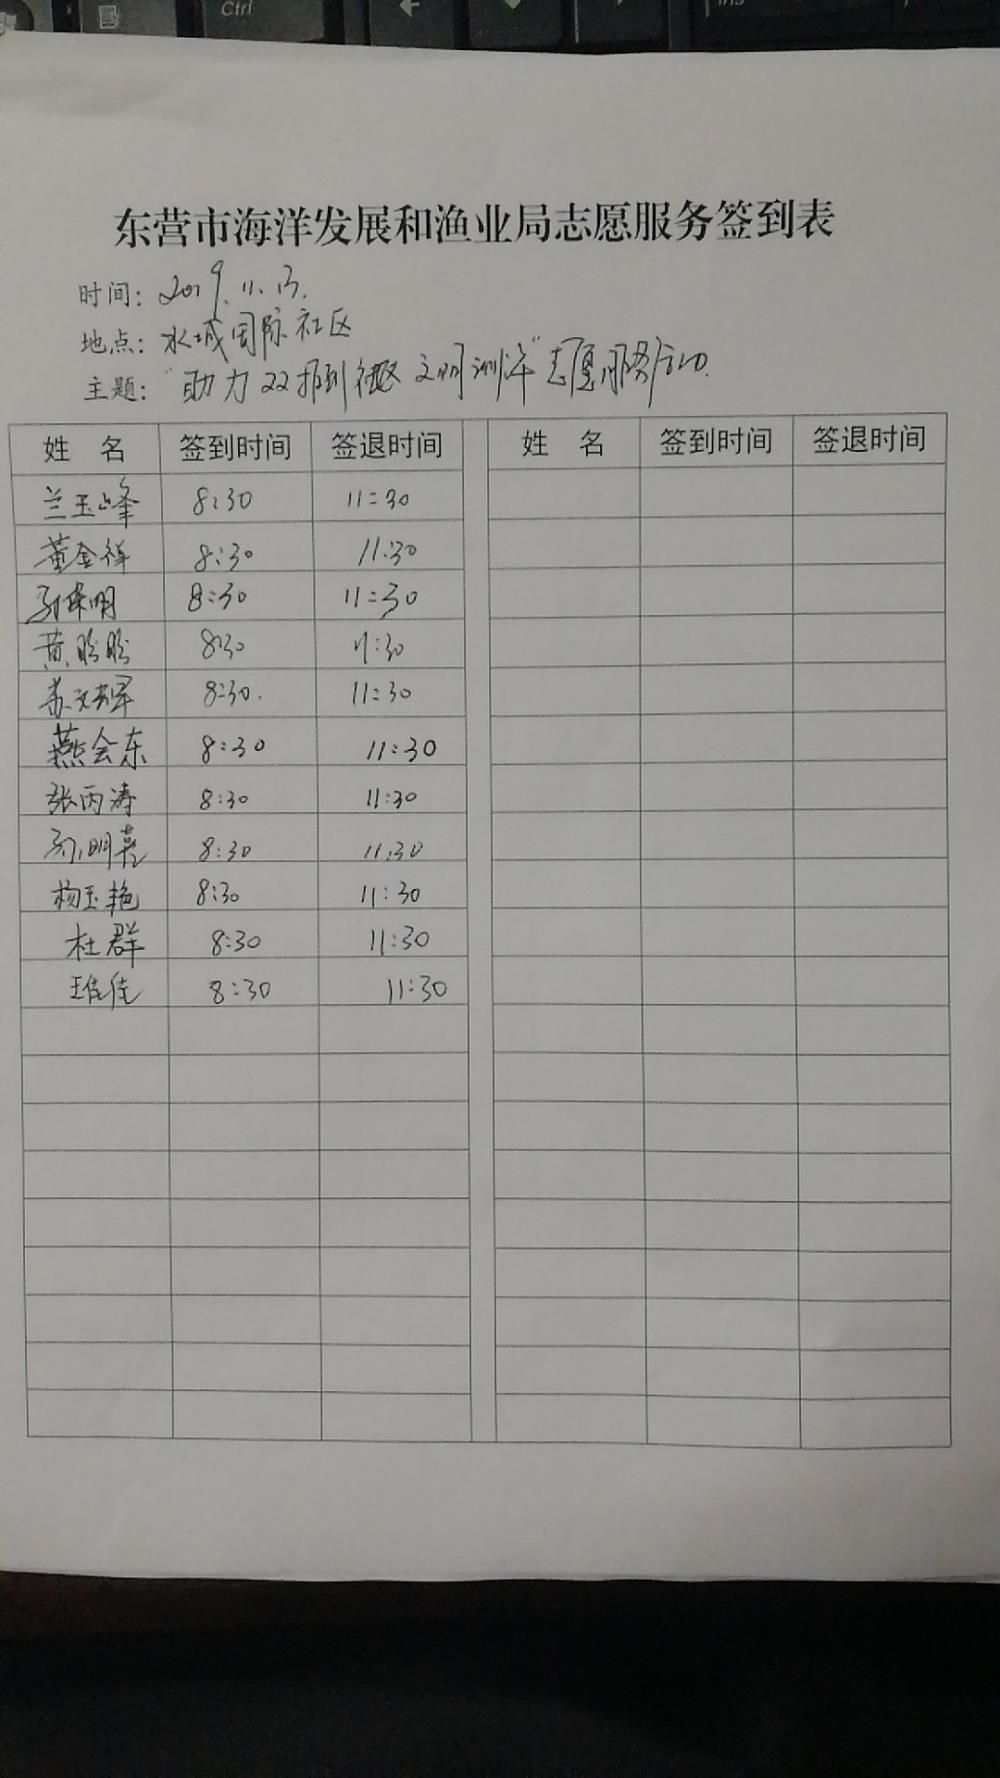 Ctrl
Ins
东营市海洋发展和渔业局志愿服务签到表
时间: 2019.11.13.
地点: 水城国际社区
主题: "助力双报到社区 文明测评"志愿服务活动.
姓 名 签到时间 签退时间 姓 名 签到时间 签退时间
兰玉峰 8:30 11:30
董金祥 8:30 11:30
明 8:30 11:30
黄盼盼 8:30 11:30
苏文 8:30. 11:30
燕会东 8:30 11:30
张丙涛 8:30 11:30
孙明亮 8:30 11:30
杨玉艳 8:30 11:30
杜群 8:30 11:30
佳 8:30 11:30